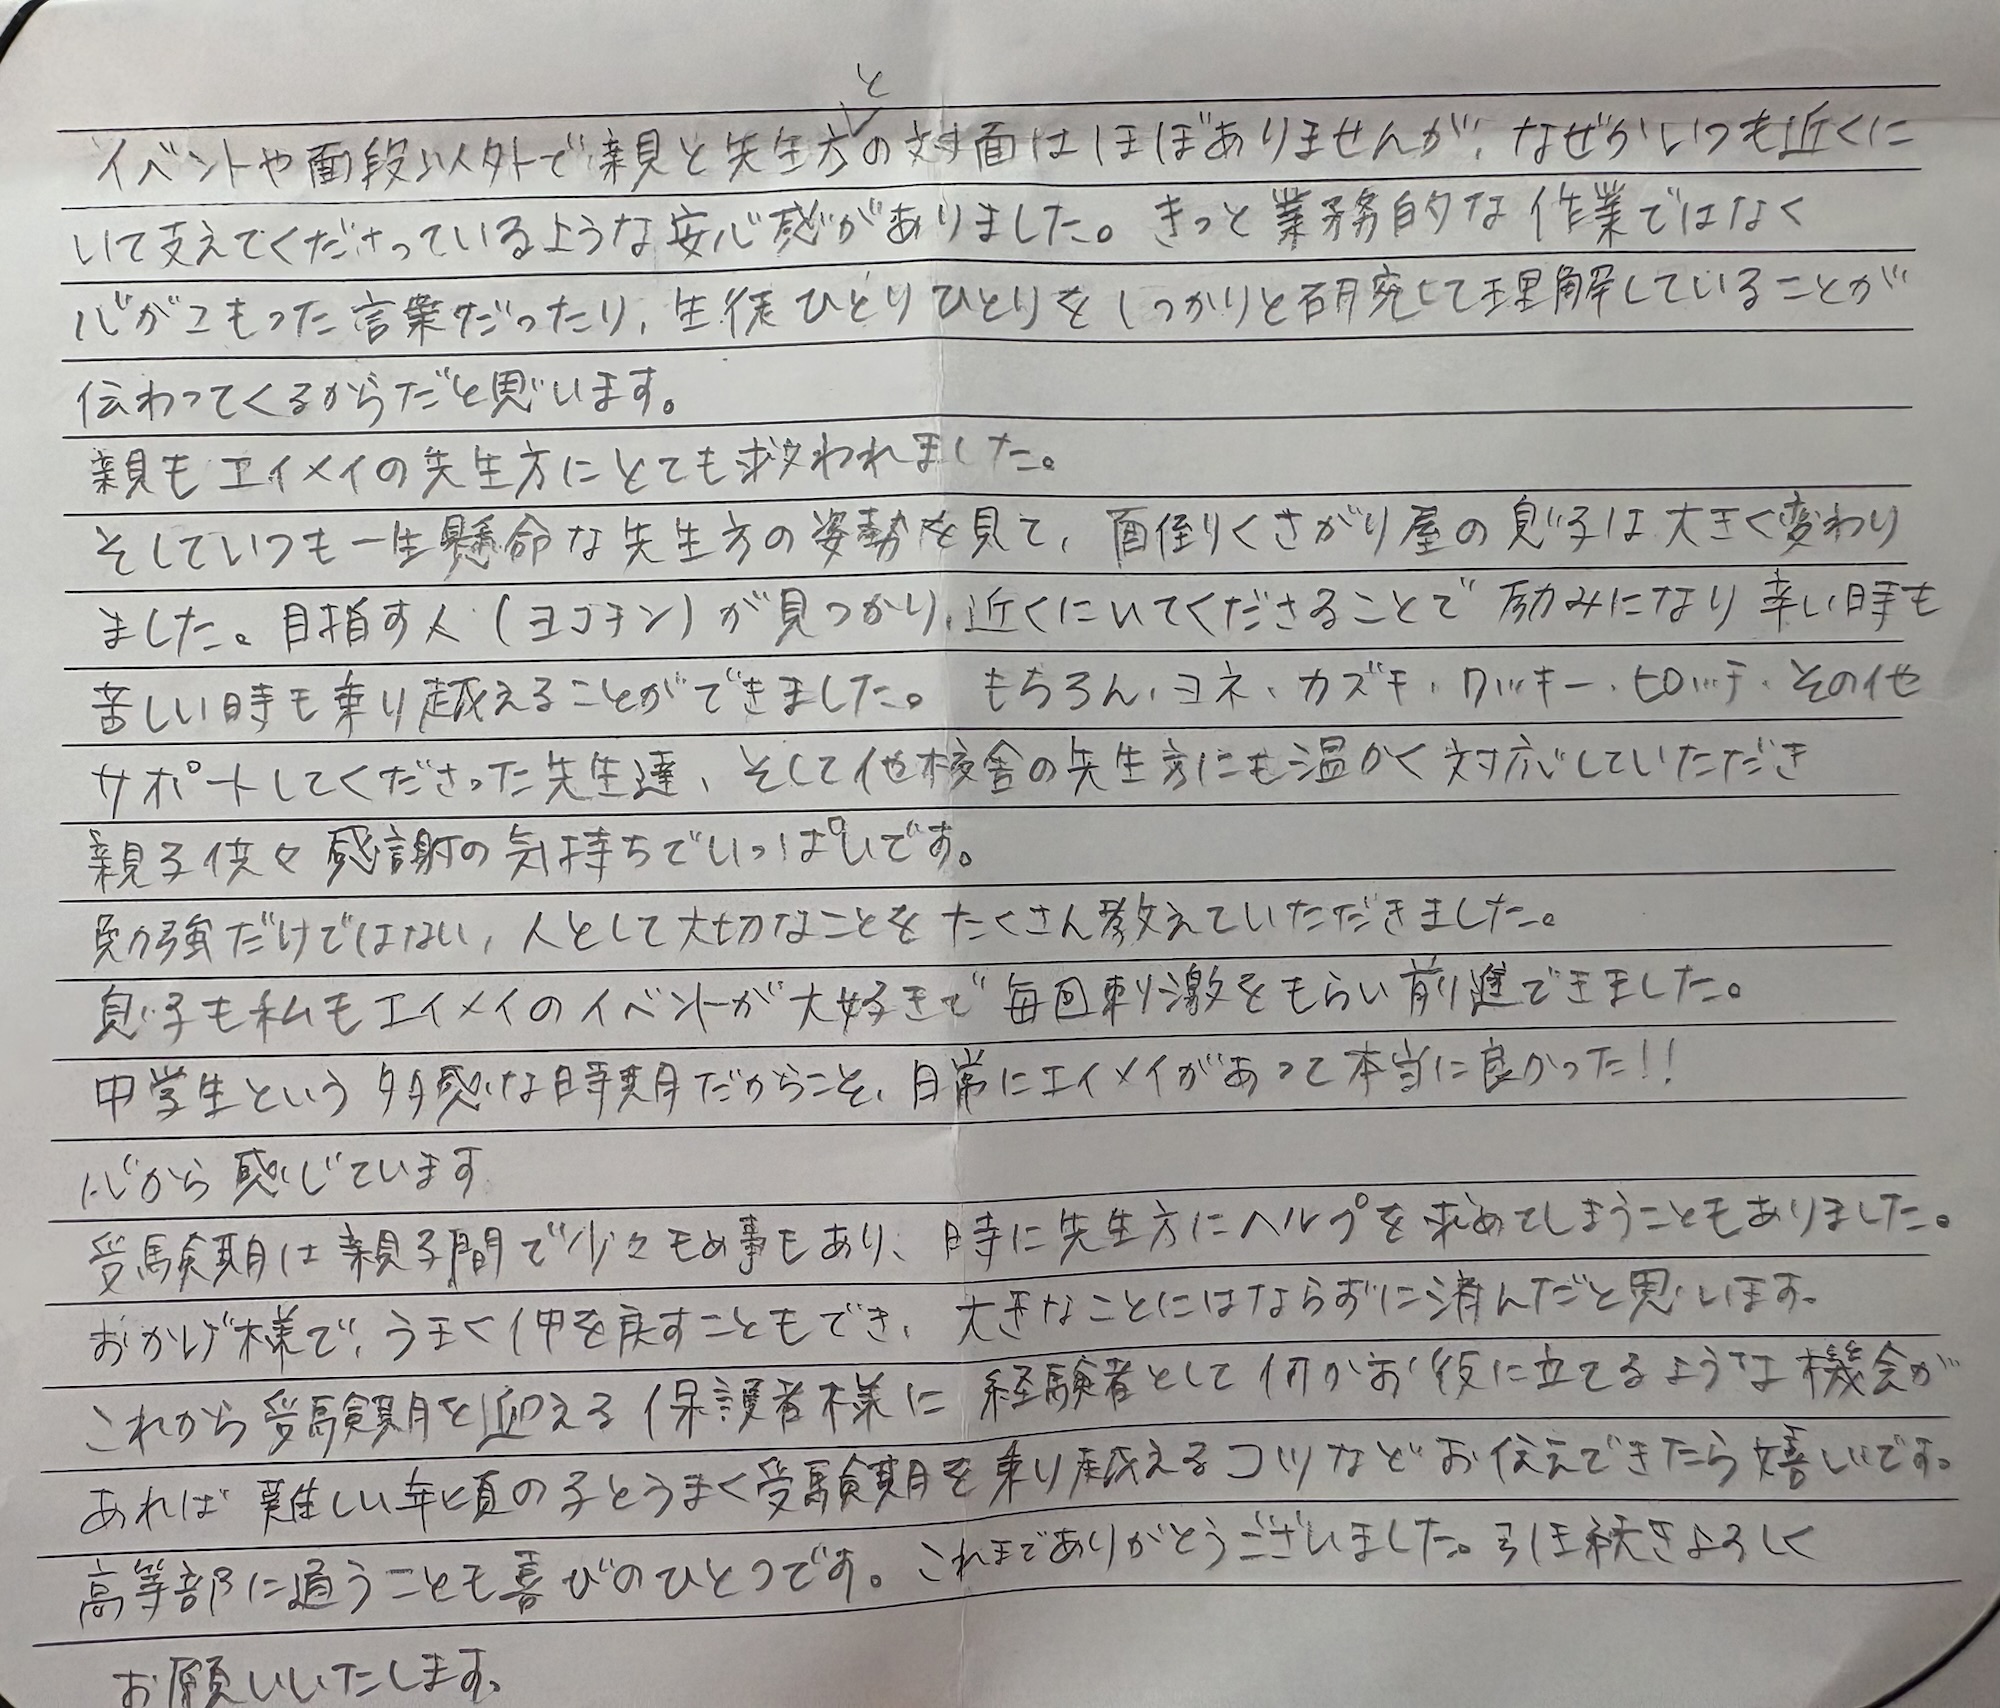 イベントや面段以外で親と先生方との対面はほぼありませんが、なぜかいつも近くに
いて支えてくださっているような安心感がありました。きっと業務的な作業ではなく
心がこもった言葉だったり、生徒ひとりひとりをしっかりと研究して理解していることが
伝わってくるからだと思います。
親もエイメイの先生方にとても救われました。
そしていつも一生懸命な先生方の姿勢を見て、面倒くさがり屋の息子は大きく変わり
ました。目指す人(ヨコチン)が見つかり、近くにいてくださることで励みになり辛い時も
苦しい時も乗り越えることができました。もちろん、ヨネ、カズキ、ワッキー、ヒロッチ、その他
サポートしてくださった先生達、そして他校舎の先生方にも温かく対応していただき
親子供々感謝の気持ちでいっぱいです。
勉強だけではない、人として大切なことをたくさん教えていただきました。
息子も私もエイメイのイベントが大好きで毎回刺激をもらい前進できました。
中学生という多感な時期だからこそ、日常にエイメイがあって本当に良かった!!
心から感じています
受験期は親子間で少々もめ事もあり、時に先生方にヘルプを求めてしまうこともありました。
おかげ様で、うまく仲を戻すこともでき、大きなことにはならずに済んだと思います。
これから受験期を迎える保護者様に経験者として何かお役に立てるような機会が
あれば難しい年頃の子とうまく受験期を乗り越えるコツなどお伝えできたら嬉しいです。
高等部に通うことも喜びのひとつです。これまでありがとうございました。引き続きよろしく
お願いいたします。